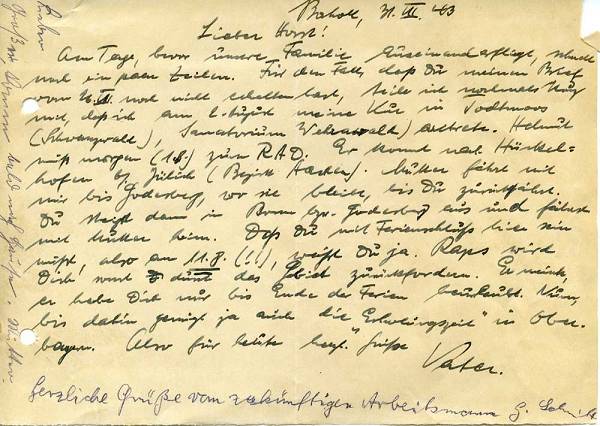 Bocholt, 31. VII. 43
Lieber Horst!
Am Tage, bevor unsere Familie auseinanderfliegt, schnell
noch ein paar Zeilen. Für den Fall, daß Du meinen Brief
vom noch nicht erhalten hast, teile ich nochmals kurz
mit, daß ich am 2. August meine Kur in Todtmoos
(Schwarzwald), Sanatorium Wehrawald) antrete. Helmut
muß morgen (1.8.) zum RAD. Er kommt nach Hückel-
hofen b/ Jülich (Bezirk Aachen). Mutter fährt mit
mir bis Godesberg, wo sie bleibt, bis Du zurückfährst.
Du steigst dann in Bonn bzw. Godesberg aus und fährst
mit Mutter heim. Daß Du mit Ferienschluß hier sein
mußt, also am 11.8. (!!), weißt Du ja. Raps wird
Dich, sonst durch das zurückfordern. Er meint,
er habe Dich nur bis Ende der Ferien beurlaubt. Nun,
bis dahin genügt ja auch die "Erholungszeit" in Ober-
bayern. Also für heute herzl. Grüße
Vater.
Herzliche Grüße vom zukünftigen Arbeitsmann H.
Lieber
bald mehr Grüße. Mutter